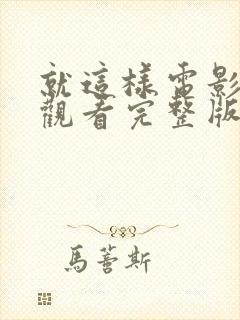 就這樣電影
觀看完整版
馬薈斯